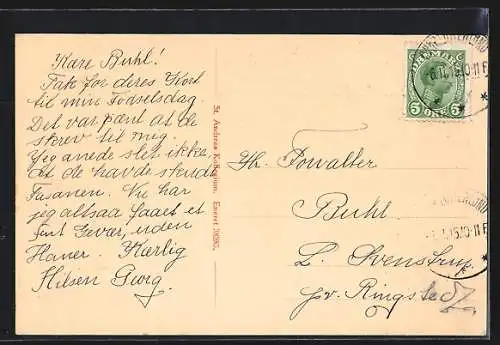 Kare Buhl!
Tak for deres Kort
til min Fødselsdag.
Det var pænt at de
skrev til mig.
Jeg anede slet ikke,
at de havde skudt
Fasanen. Nu har
jeg altsaa faaet et
fint Gevær, uden
Haner. Kærlig
Hilsen Georg.
St. Andreas Kollegium. Eneret 39285.
DANMARK
5 ØRE 5
Hr. Forvalter
Buhl.
L. Svenstrup
pr. Ringsted